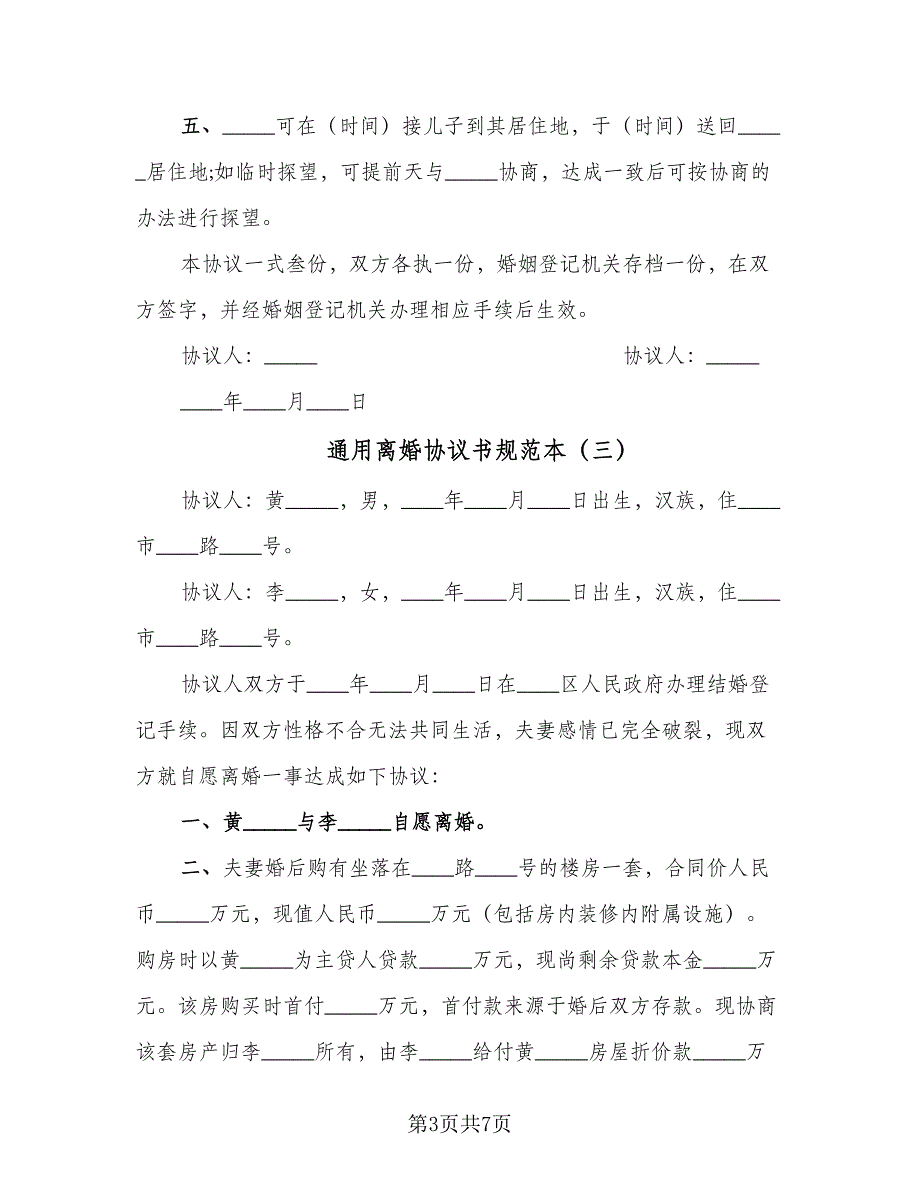 五、_____可在（时间）接儿子到其居住地，于（时间）送回____
_居住地;如临时探望，可提前天与_____协商，达成一致后可按协商的
办法进行探望。
本协议一式叁份，双方各执一份，婚姻登记机关存档一份，在双
方签字，并经婚姻登记机关办理相应手续后生效。
协议人：_____ 协议人：_____
____年____月____日
通用离婚协议书规范本（三）
协议人：黄_____，男，____年____月____日出生，汉族，住____
市____路____号。
协议人：李_____，女，____年____月____日出生，汉族，住____
市____路____号。
协议人双方于____年____月____日在____区人民政府办理结婚登
记手续。因双方性格不合无法共同生活，夫妻感情已完全破裂，现双
方就自愿离婚一事达成如下协议：
一、黄_____与李_____自愿离婚。
二、夫妻婚后购有坐落在____路____号的楼房一套，合同价人民
币_____万元，现值人民币_____万元（包括房内装修内附属设施）。
购房时以黄_____为主贷人贷款_____万元，现尚剩余贷款本金_____万
元。该房购买时首付_____万元，首付款来源于婚后双方存款。现协商
该套房产归李_____所有，由李_____给付黄_____房屋折价款_____万
第3页共7页